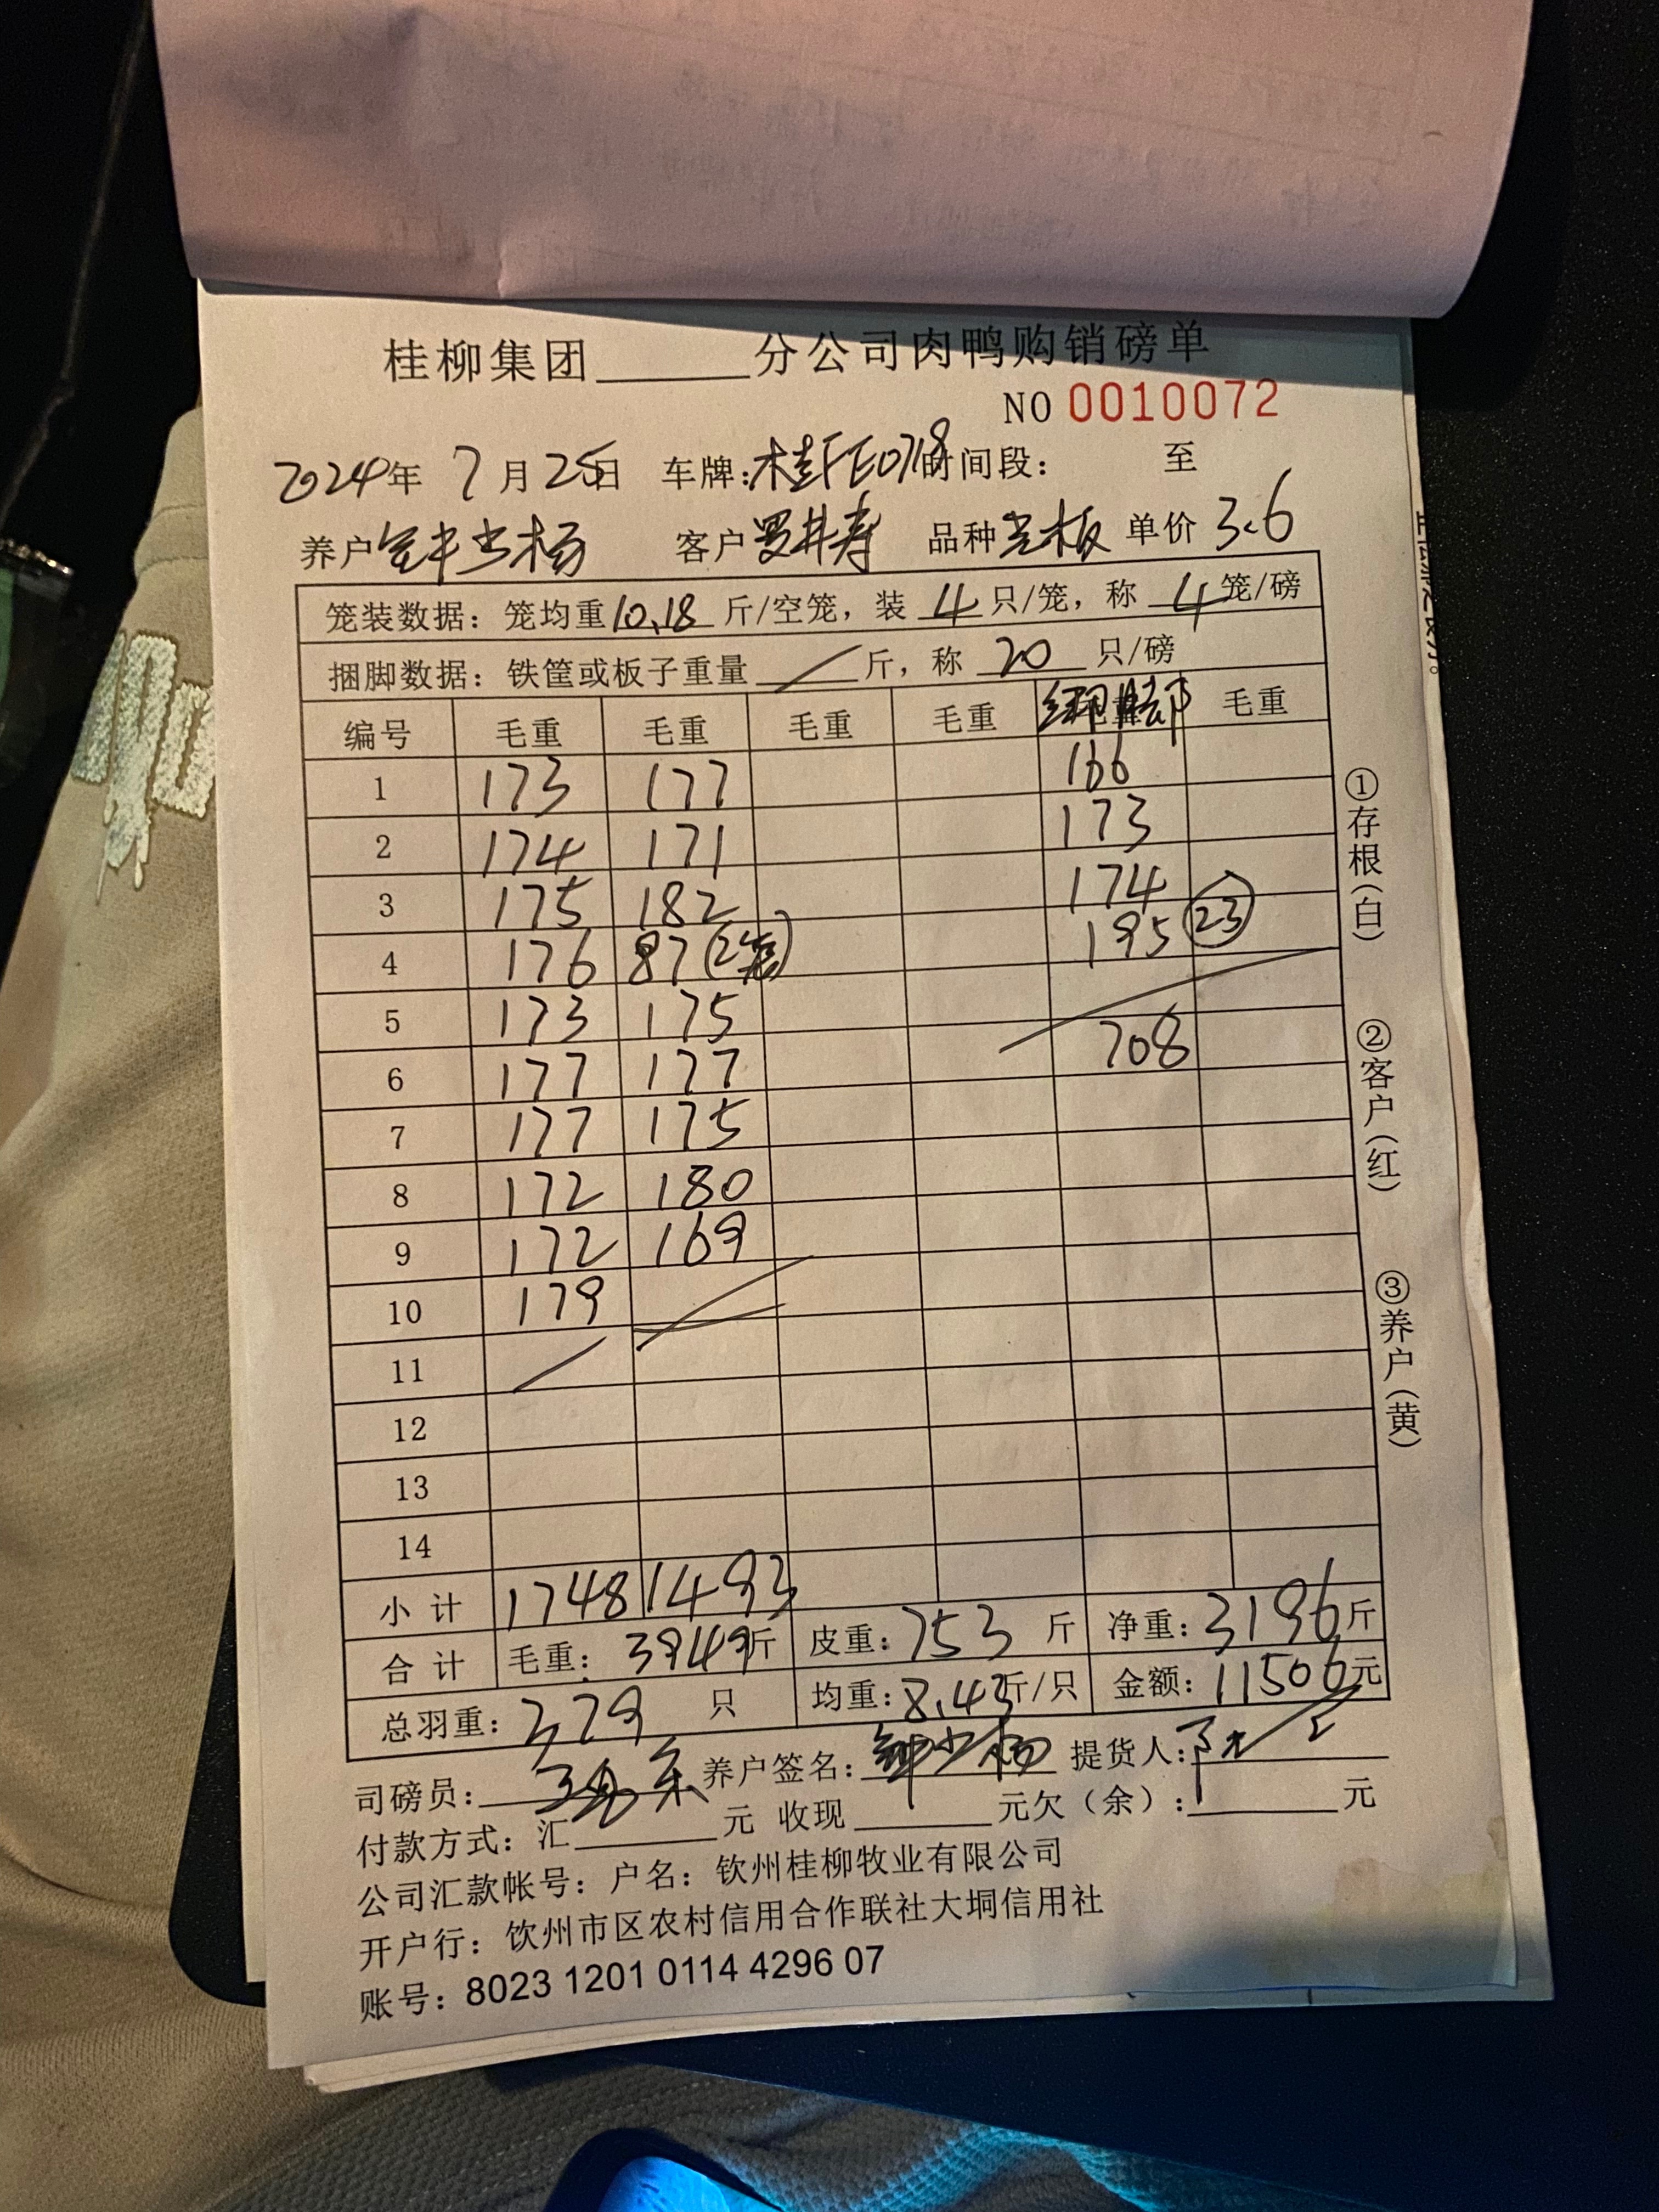 桂柳集团______分公司肉鸭购销磅单
NO 0010072
2024年 7月25日 车牌:桂FE0718 时间段: 至
养户 钟少杨 客户 罗井寿 品种 光板 单价 3.6
笼装数据：笼均重10.18斤/空笼，装 4 只/笼，称 4 笼/磅
捆脚数据：铁筐或板子重量 / 斤，称 20 只/磅
编号 毛重 毛重 毛重 毛重 绑脚 毛重
1 173 177 166
2 174 171 173
3 175 182 174
4 176 87(2笼) 195 (23)
5 173 175
6 177 177 708
7 177 175
8 172 180
9 172 169
10 179
11
12
13
14
小计 1748 1493
合计 毛重：3949斤 皮重：753 斤 净重：3196斤
总羽重：379 只 均重：8.43斤/只 金额：11506元
司磅员： 养户签名：钟少杨 提货人：
付款方式：汇______元 收现______元欠（余）：______元
公司汇款帐号：户名：钦州桂柳牧业有限公司
开户行：钦州市区农村信用合作联社大垌信用社
账号：8023 1201 0114 4296 07
①存根(白)
②客户(红)
③养户(黄)